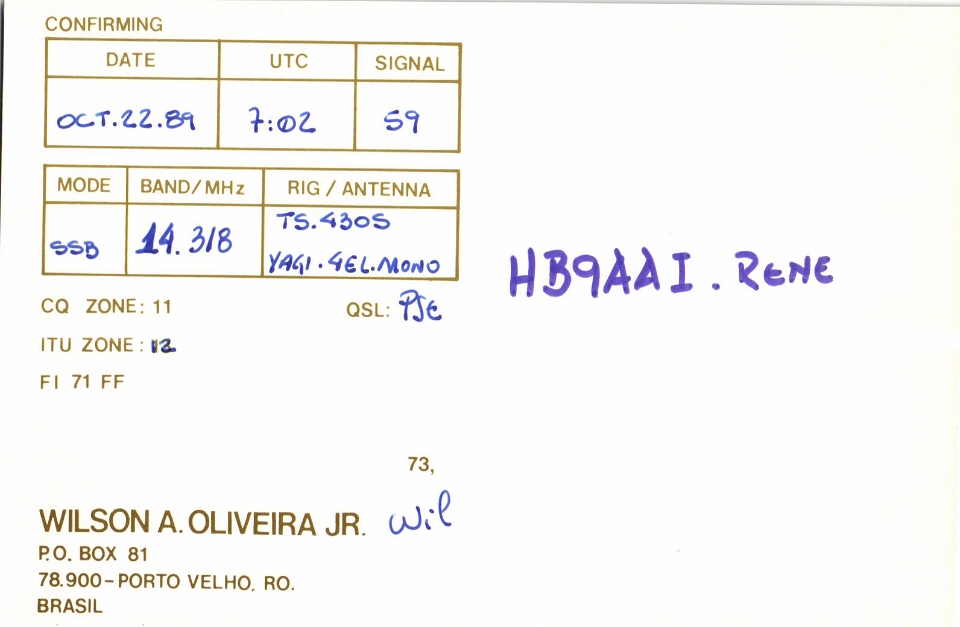 CONFIRMING
DATE UTC SIGNAL
OCT.22.89 7:02 59
MODE BAND/MHz RIG / ANTENNA
SSB 14.318 TS.430S
YAGI.4EL.MONO
HB9AAI. RENE
CQ ZONE: 11 QSL: PSE
ITU ZONE: 12
FI 71 FF
73,
WILSON A. OLIVEIRA JR. Wil
P.O. BOX 81
78.900-PORTO VELHO, RO.
BRASIL